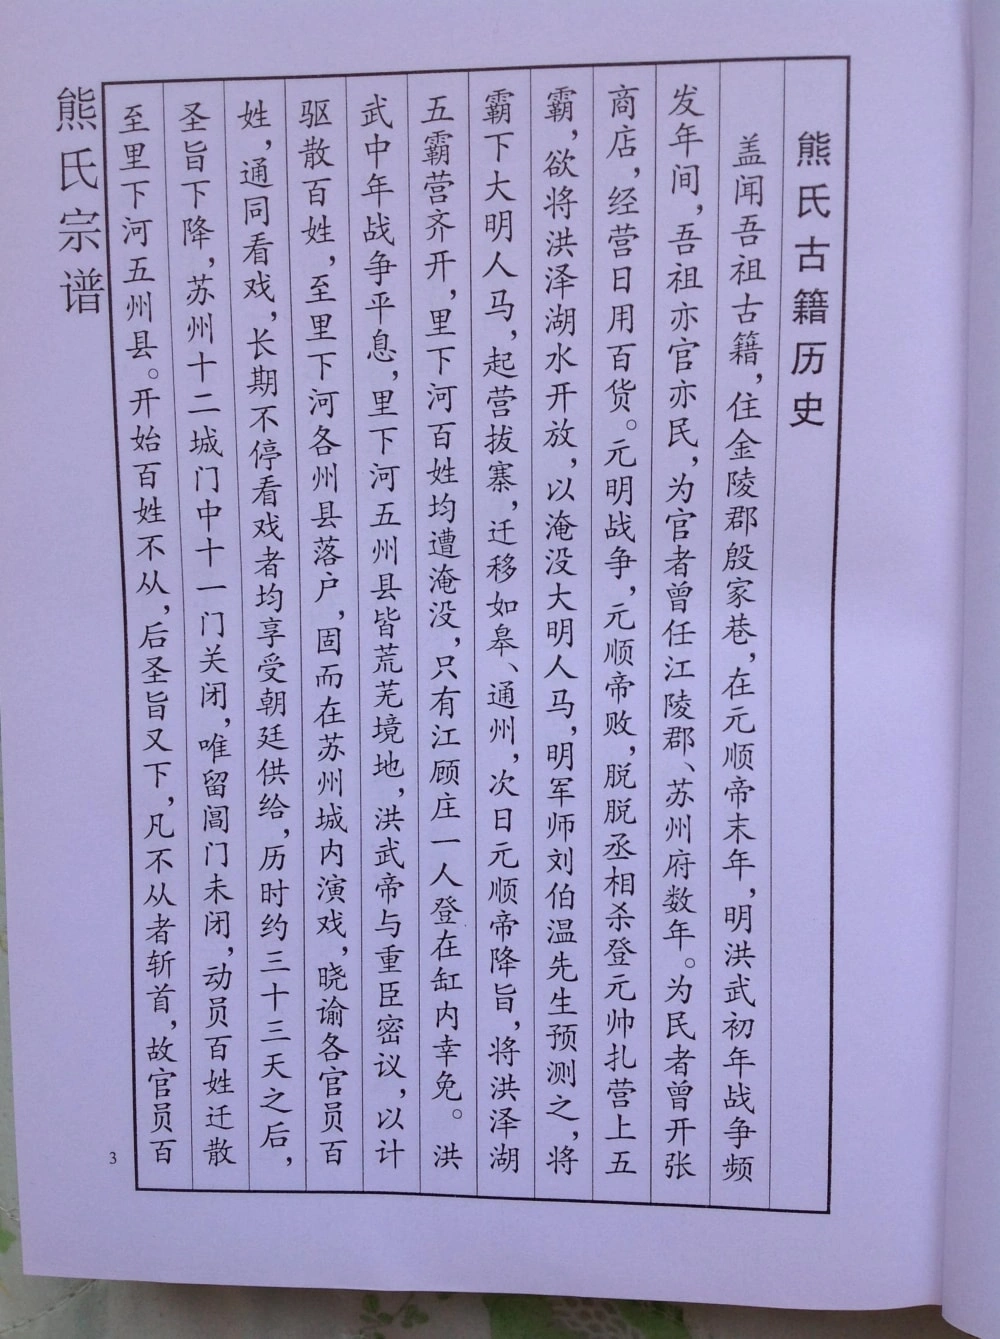 熊氏古籍历史
盖闻吾祖古籍，住金陵郡殷家巷，在元顺帝末年，明洪武初年战争频
发年间，吾祖亦官亦民，为官者曾任江陵郡、苏州府数年。为民者曾开张
商店，经营日用百货。元明战争，元顺帝败，脱脱丞相杀登元帅扎营上五
霸，欲将洪泽湖水开放，以淹没大明人马，明军师刘伯温先生预测之，将
霸下大明人马，起营拔寨，迁移如皋、通州，次日元顺帝降旨，将洪泽湖
五霸营齐开，里下河百姓均遭淹没，只有江顾庄一人登在缸内幸免。洪
武中年战争平息，里下河五州县皆荒芜境地，洪武帝与重臣密议，以计
驱散百姓，至里下河各州县落户，固而在苏州城内演戏，晓谕各官员百
姓，通同看戏，长期不停看戏者均享受朝廷供给，历时约三十三天之后，
圣旨下降，苏州十二城门中十一门关闭，唯留阊门未闭，动员百姓迁散
至里下河五州县。开始百姓不从，后圣旨又下，凡不从者斩首，故官员百
熊氏宗谱
3